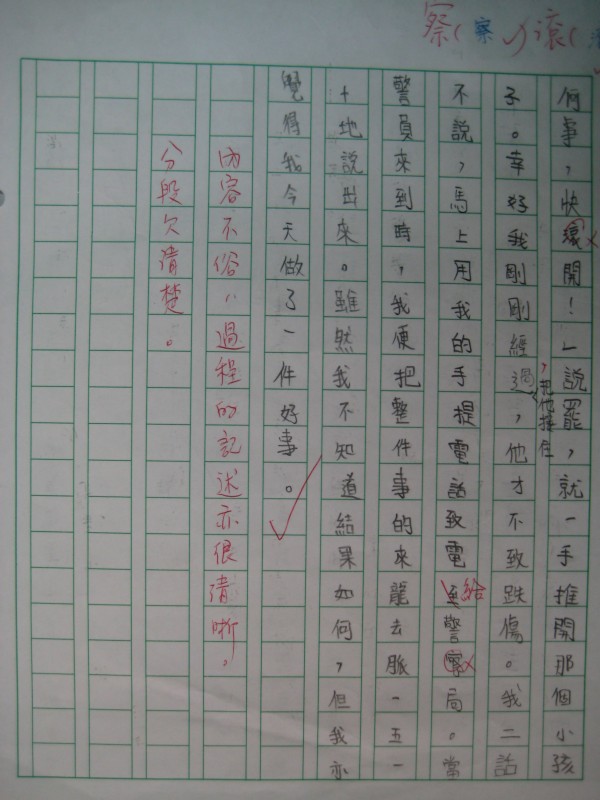 察(察✓)滾(
何事，快滾開！」說罷，就一手推開那個小孩
子。幸好我剛剛經過，他才不致跌傷。我二話
，把他接住
不說，馬上用我的手提電話致電至警察局。當
給
警員來到時，我便把整件事的來龍去脈一五一
十地說出來。雖然我不知道結果如何，但我亦
覺得我今天做了一件好事。
內容不俗，過程的記述亦很清晰。
分段欠清楚。